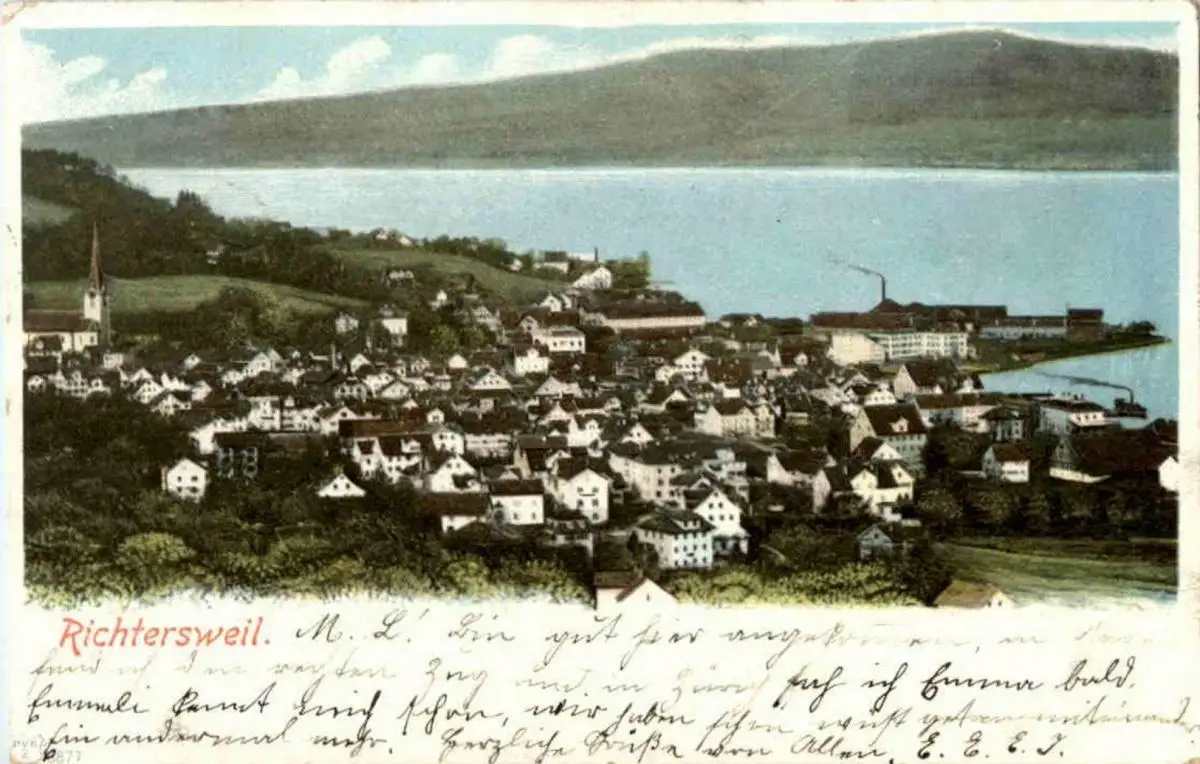 Richtersweil. M. L! Bin gut hier angekommen, in
fand ich den rechten Zug und in Zürich sah ich Emma bald.
Emmeli kennt mich schon, wir haben schon getan miteinander
Ein andermal mehr. Herzliche Grüße von Allen, E. E. E. J.
8877